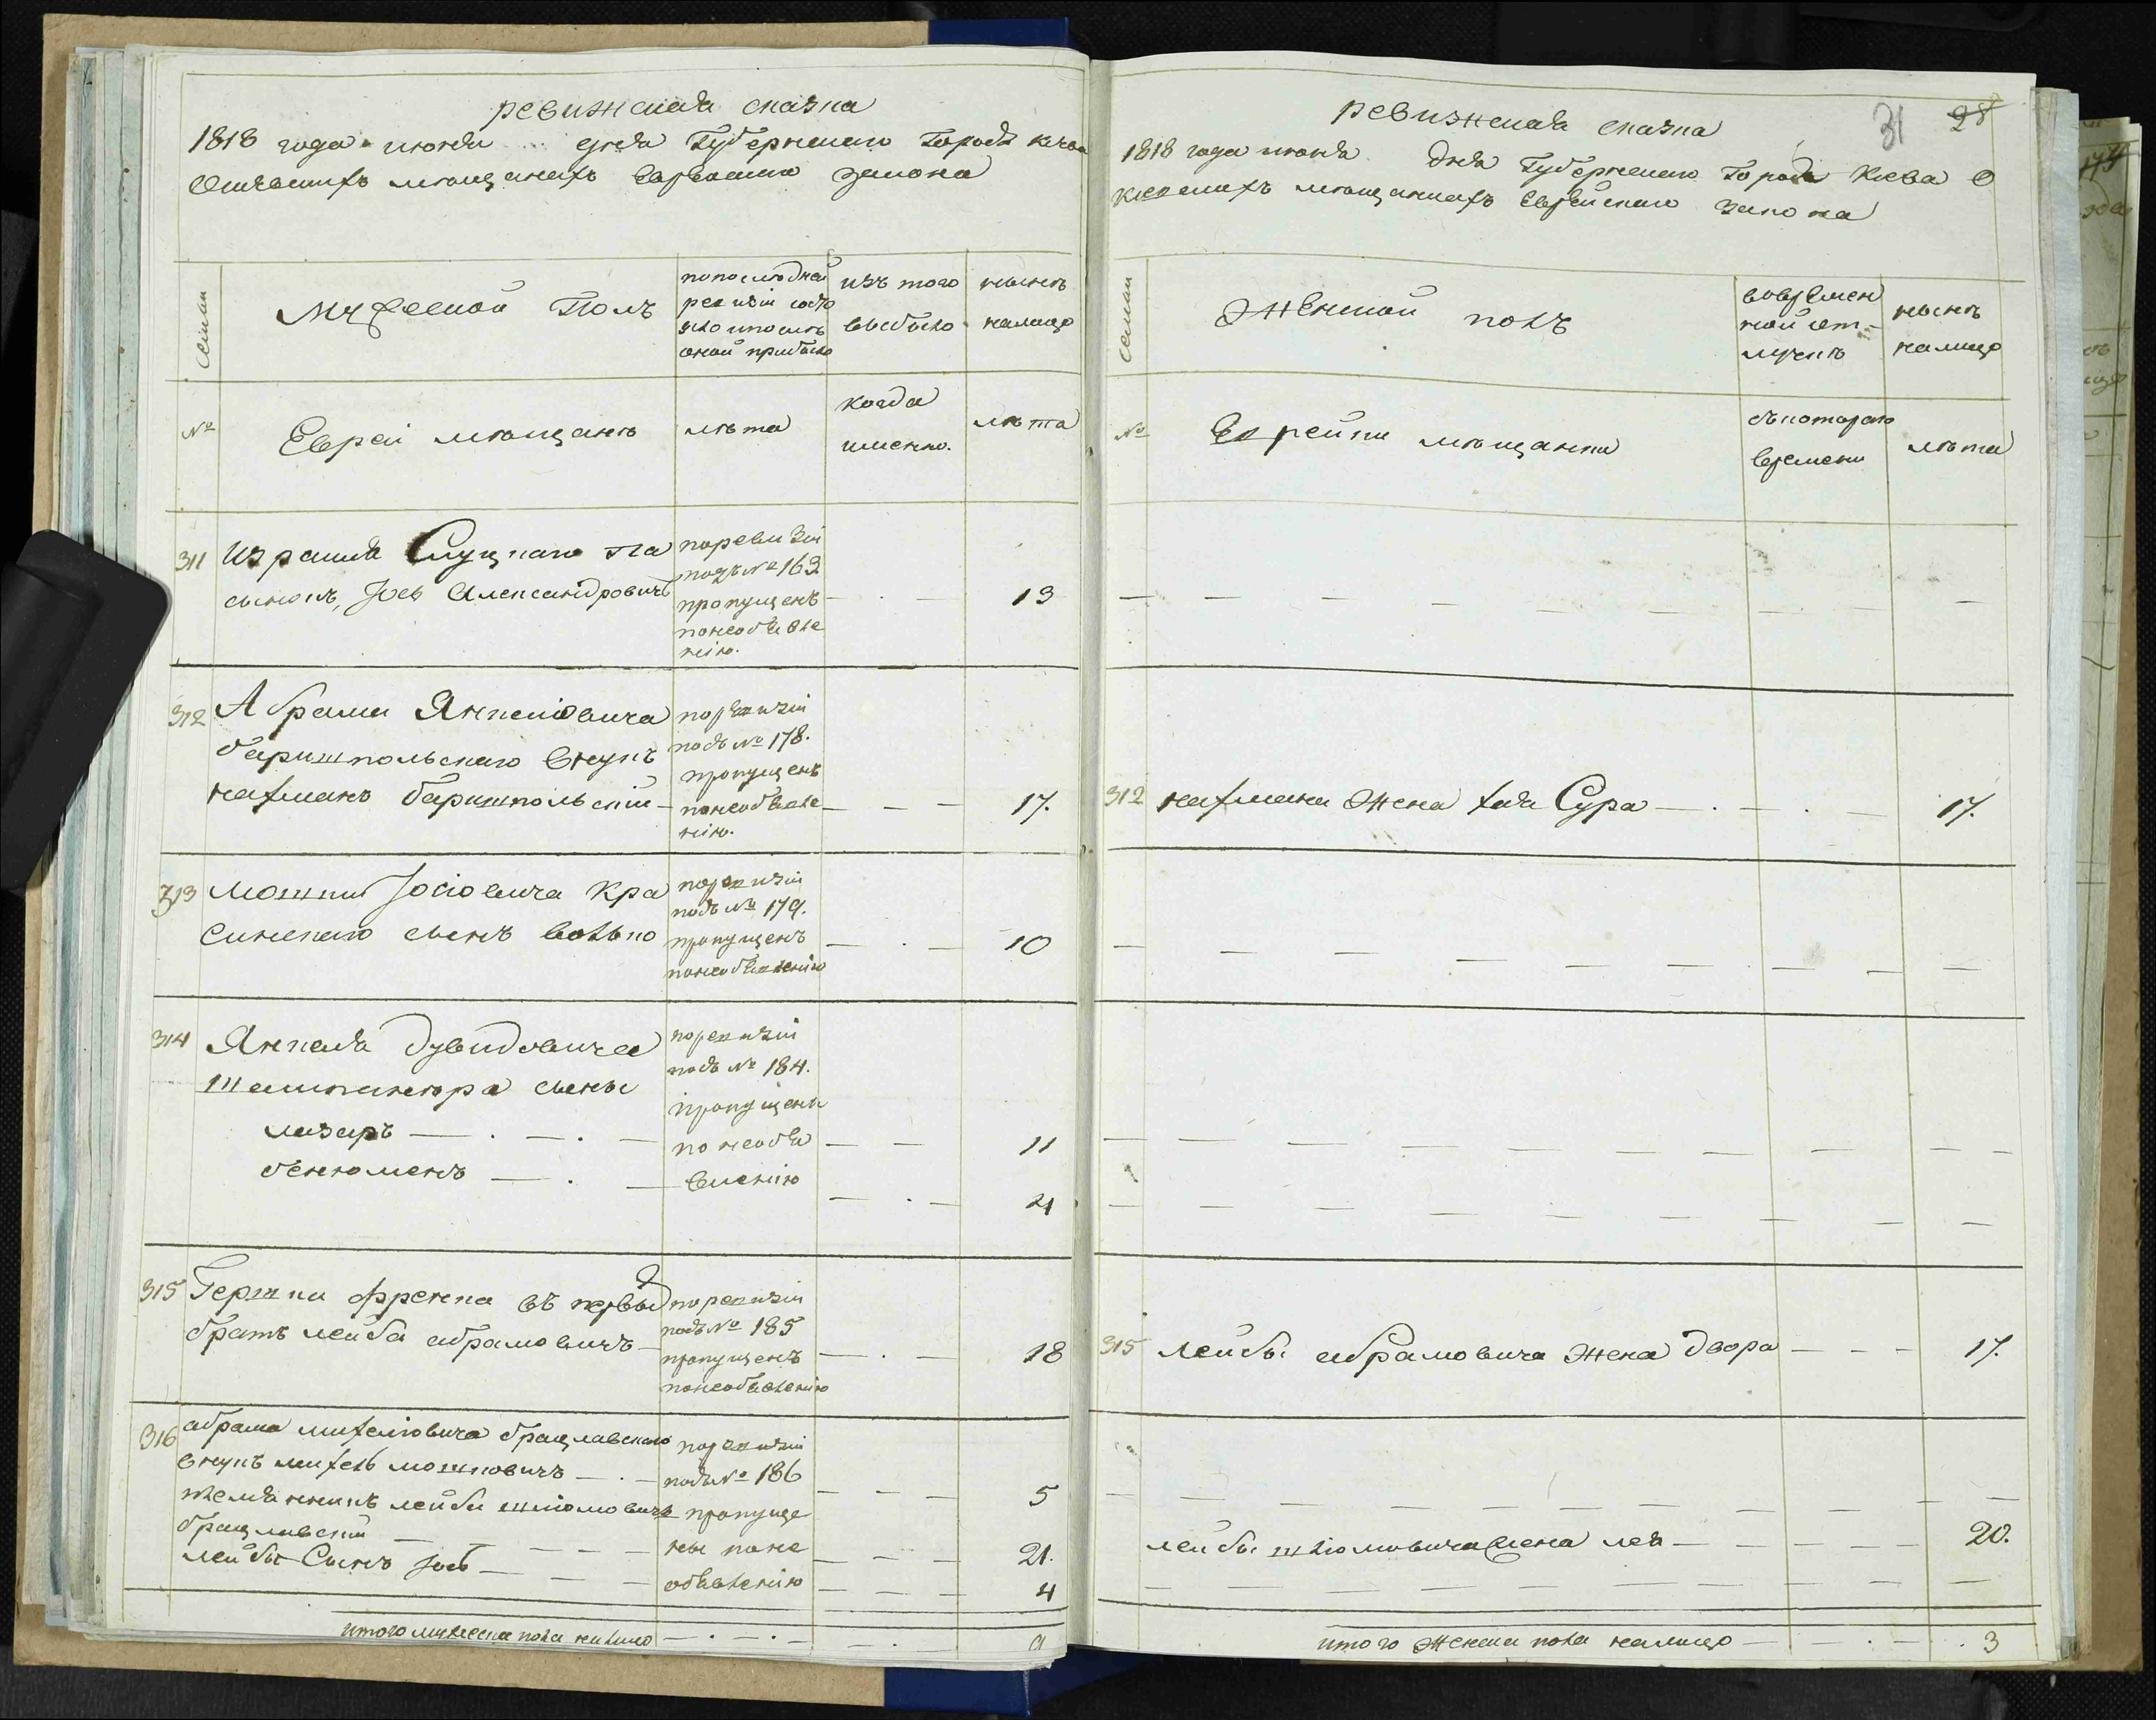 ревижская сказка
1818 года июня ... дня Губернскаго Города Киева
О киевскихъ мѣщанахъ Еврейскаго закона
семьи
Мужеской Полъ
по последней ревизіи состояло и после оной прибыло
изъ того выбыло
нынѣ налицо
№
Евреи мѣщанѣ
лѣта
когда именно.
лѣта
311 Израиля Слуцкаго па
сынокъ, Іось Александровичъ
по ревизіи
подъ № 163
пропущенъ
по необъявле
нію.
13
312 Абрама Янкеліовича
баришпольскаго внукъ
нахманъ баришпольскій
по ревизіи
подъ № 178.
пропущенъ
по необъявле
нію.
17.
313 Мошки Іосіовича Кра
синскаго сынъ Волько
по ревизіи
подъ № 179.
пропущенъ
по необъявленію
10
314 Янкеля Дувидовича
сыны
лазаръ
бенюменъ
по ревизіи
подъ № 184.
пропущены
по необъя
вленію
11
4
315 Гершки Френка въ первыхъ
братъ лейба абрамовичъ
по ревизіи
подъ № 185
пропущенъ
по необъявленію
18
316 абрама михеліовича брацлавскаго
внукъ михель мошковичъ
племянникъ лейба шліомовичъ
брацлавскій
лейбы Сынъ Іось
по ревизіи
подъ № 186
пропуще
ны по не
объявленію
5
21.
4
итого мужеска пола налицо
9
31 28
ревижская сказка
1818 года июня дня Губернскаго Города Киева О
киевскихъ мѣщанкахъ Еврейскаго закона
семьи
Женской полъ
во временной отлучкѣ
нынѣ налицо
№
Еврейки мѣщанки
съ котораго времени
лѣта
312 нахмана жена хая Сура 17.
315 лейбы абрамовича жена двора 17.
лейбы шліомовича жена лея 20.
итого женска пола налицо 3